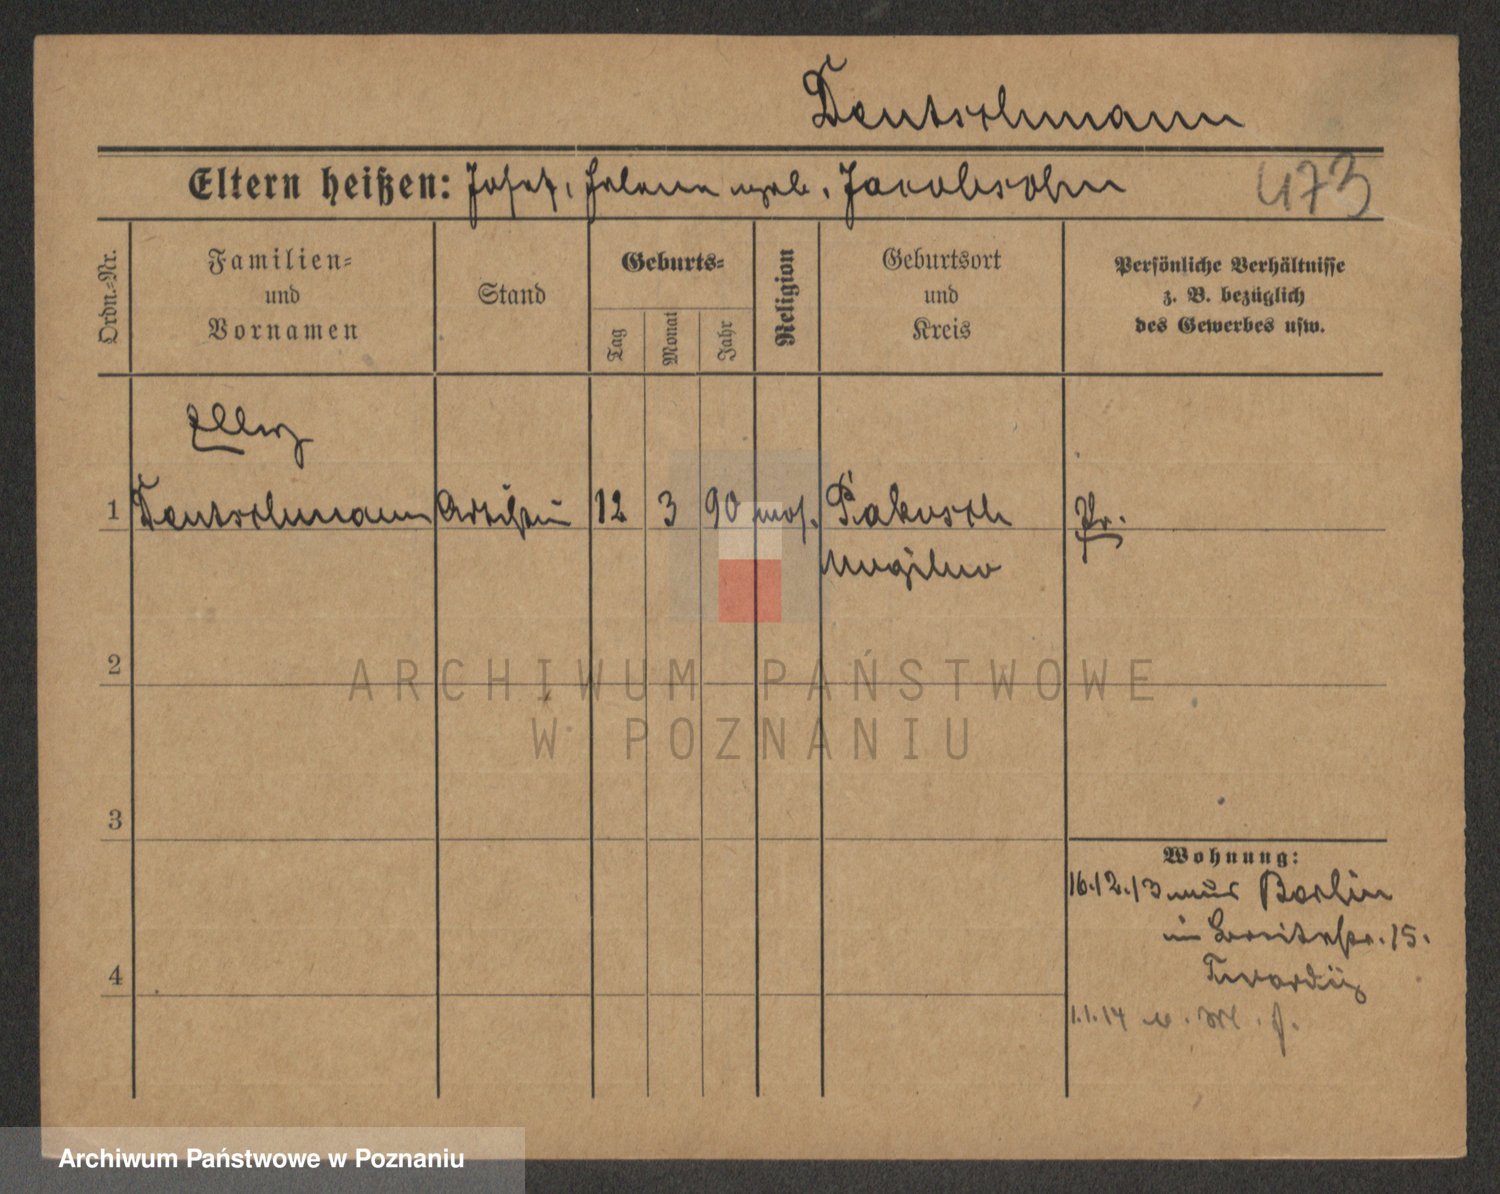 Deutschmann
Eltern heißen: Josef, Helene geb. Jacobsohn
473
Ordn.-Nr.
Familien-
und
Vornamen
Stand
Geburts-
Tag
Monat
Jahr
Religion
Geburtsort
und
Kreis
Persönliche Verhältnisse
z. B. bezüglich
des Gewerbes usw.
1 Deutschmann Artistin 12 3 90 mos. Pakosch Pr.
Mogilno
2
ARCHIWUM PAŃSTWOWE
W POZNANIU
3
Wohnung:
16.12.13 aus Berlin
in Breitestr. 15.
4
1.1.14
Archiwum Państwowe w Poznaniu